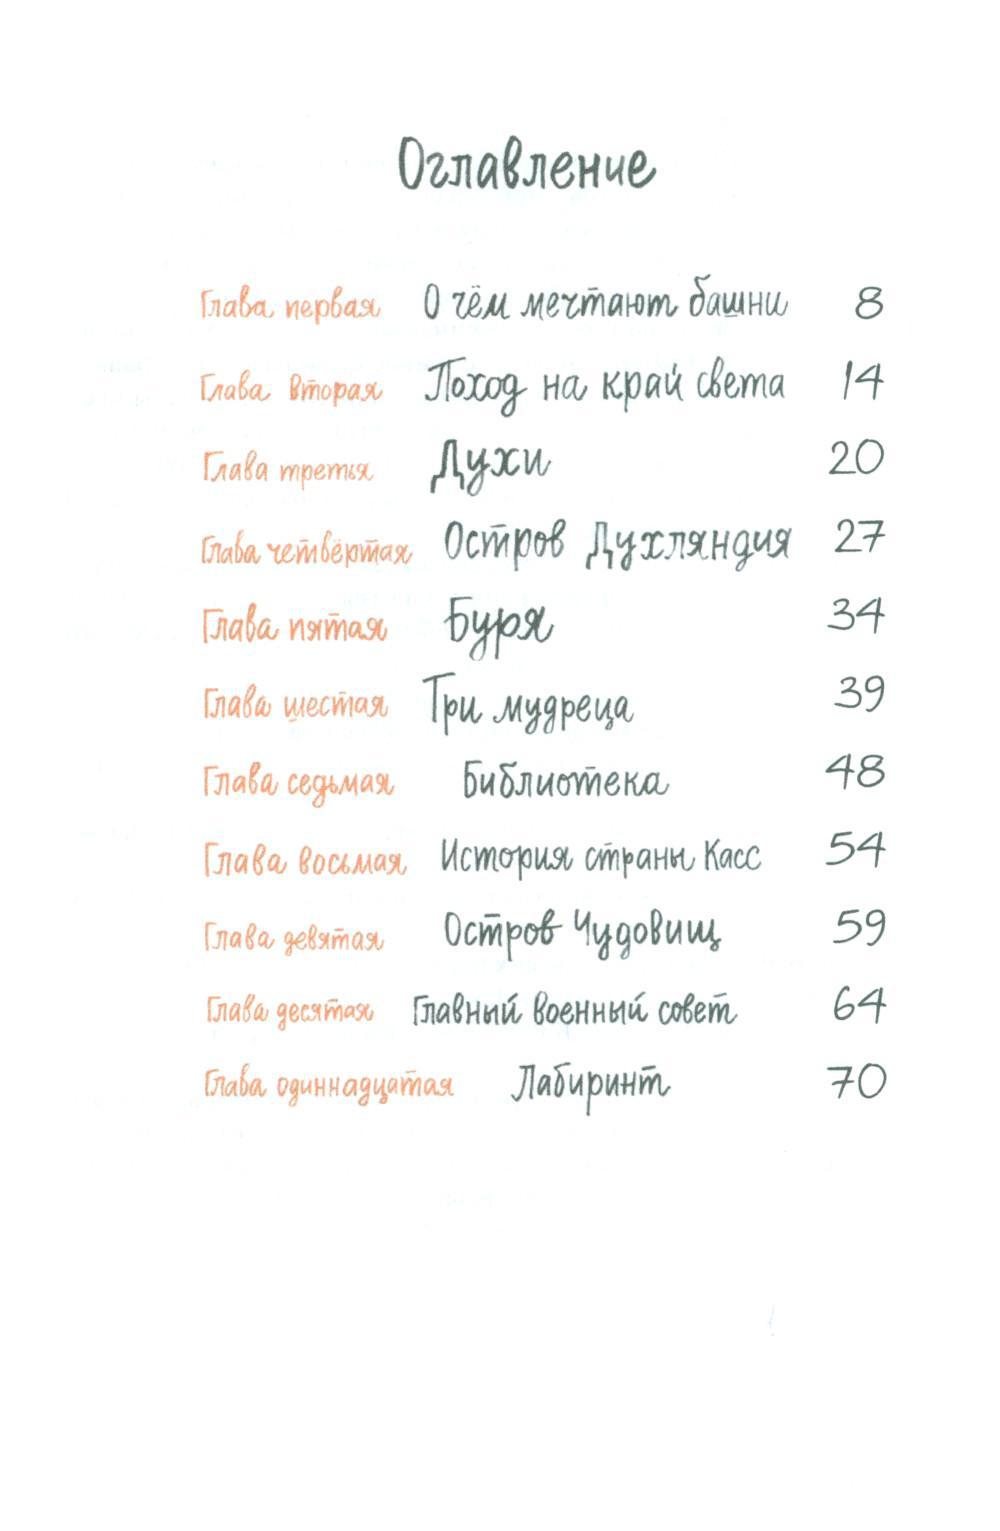 Оглавление
Глава первая О чём мечтают башни 8
Глава вторая Поход на край света 14
Глава третья Духи 20
Глава четвёртая Остров Духляндия 27
Глава пятая Буря 34
Глава шестая Три мудреца 39
Глава седьмая Библиотека 48
Глава восьмая История страны Касс 54
Глава девятая Остров Чудовищ 59
Глава десятая Главный военный совет 64
Глава одиннадцатая Лабиринт 70